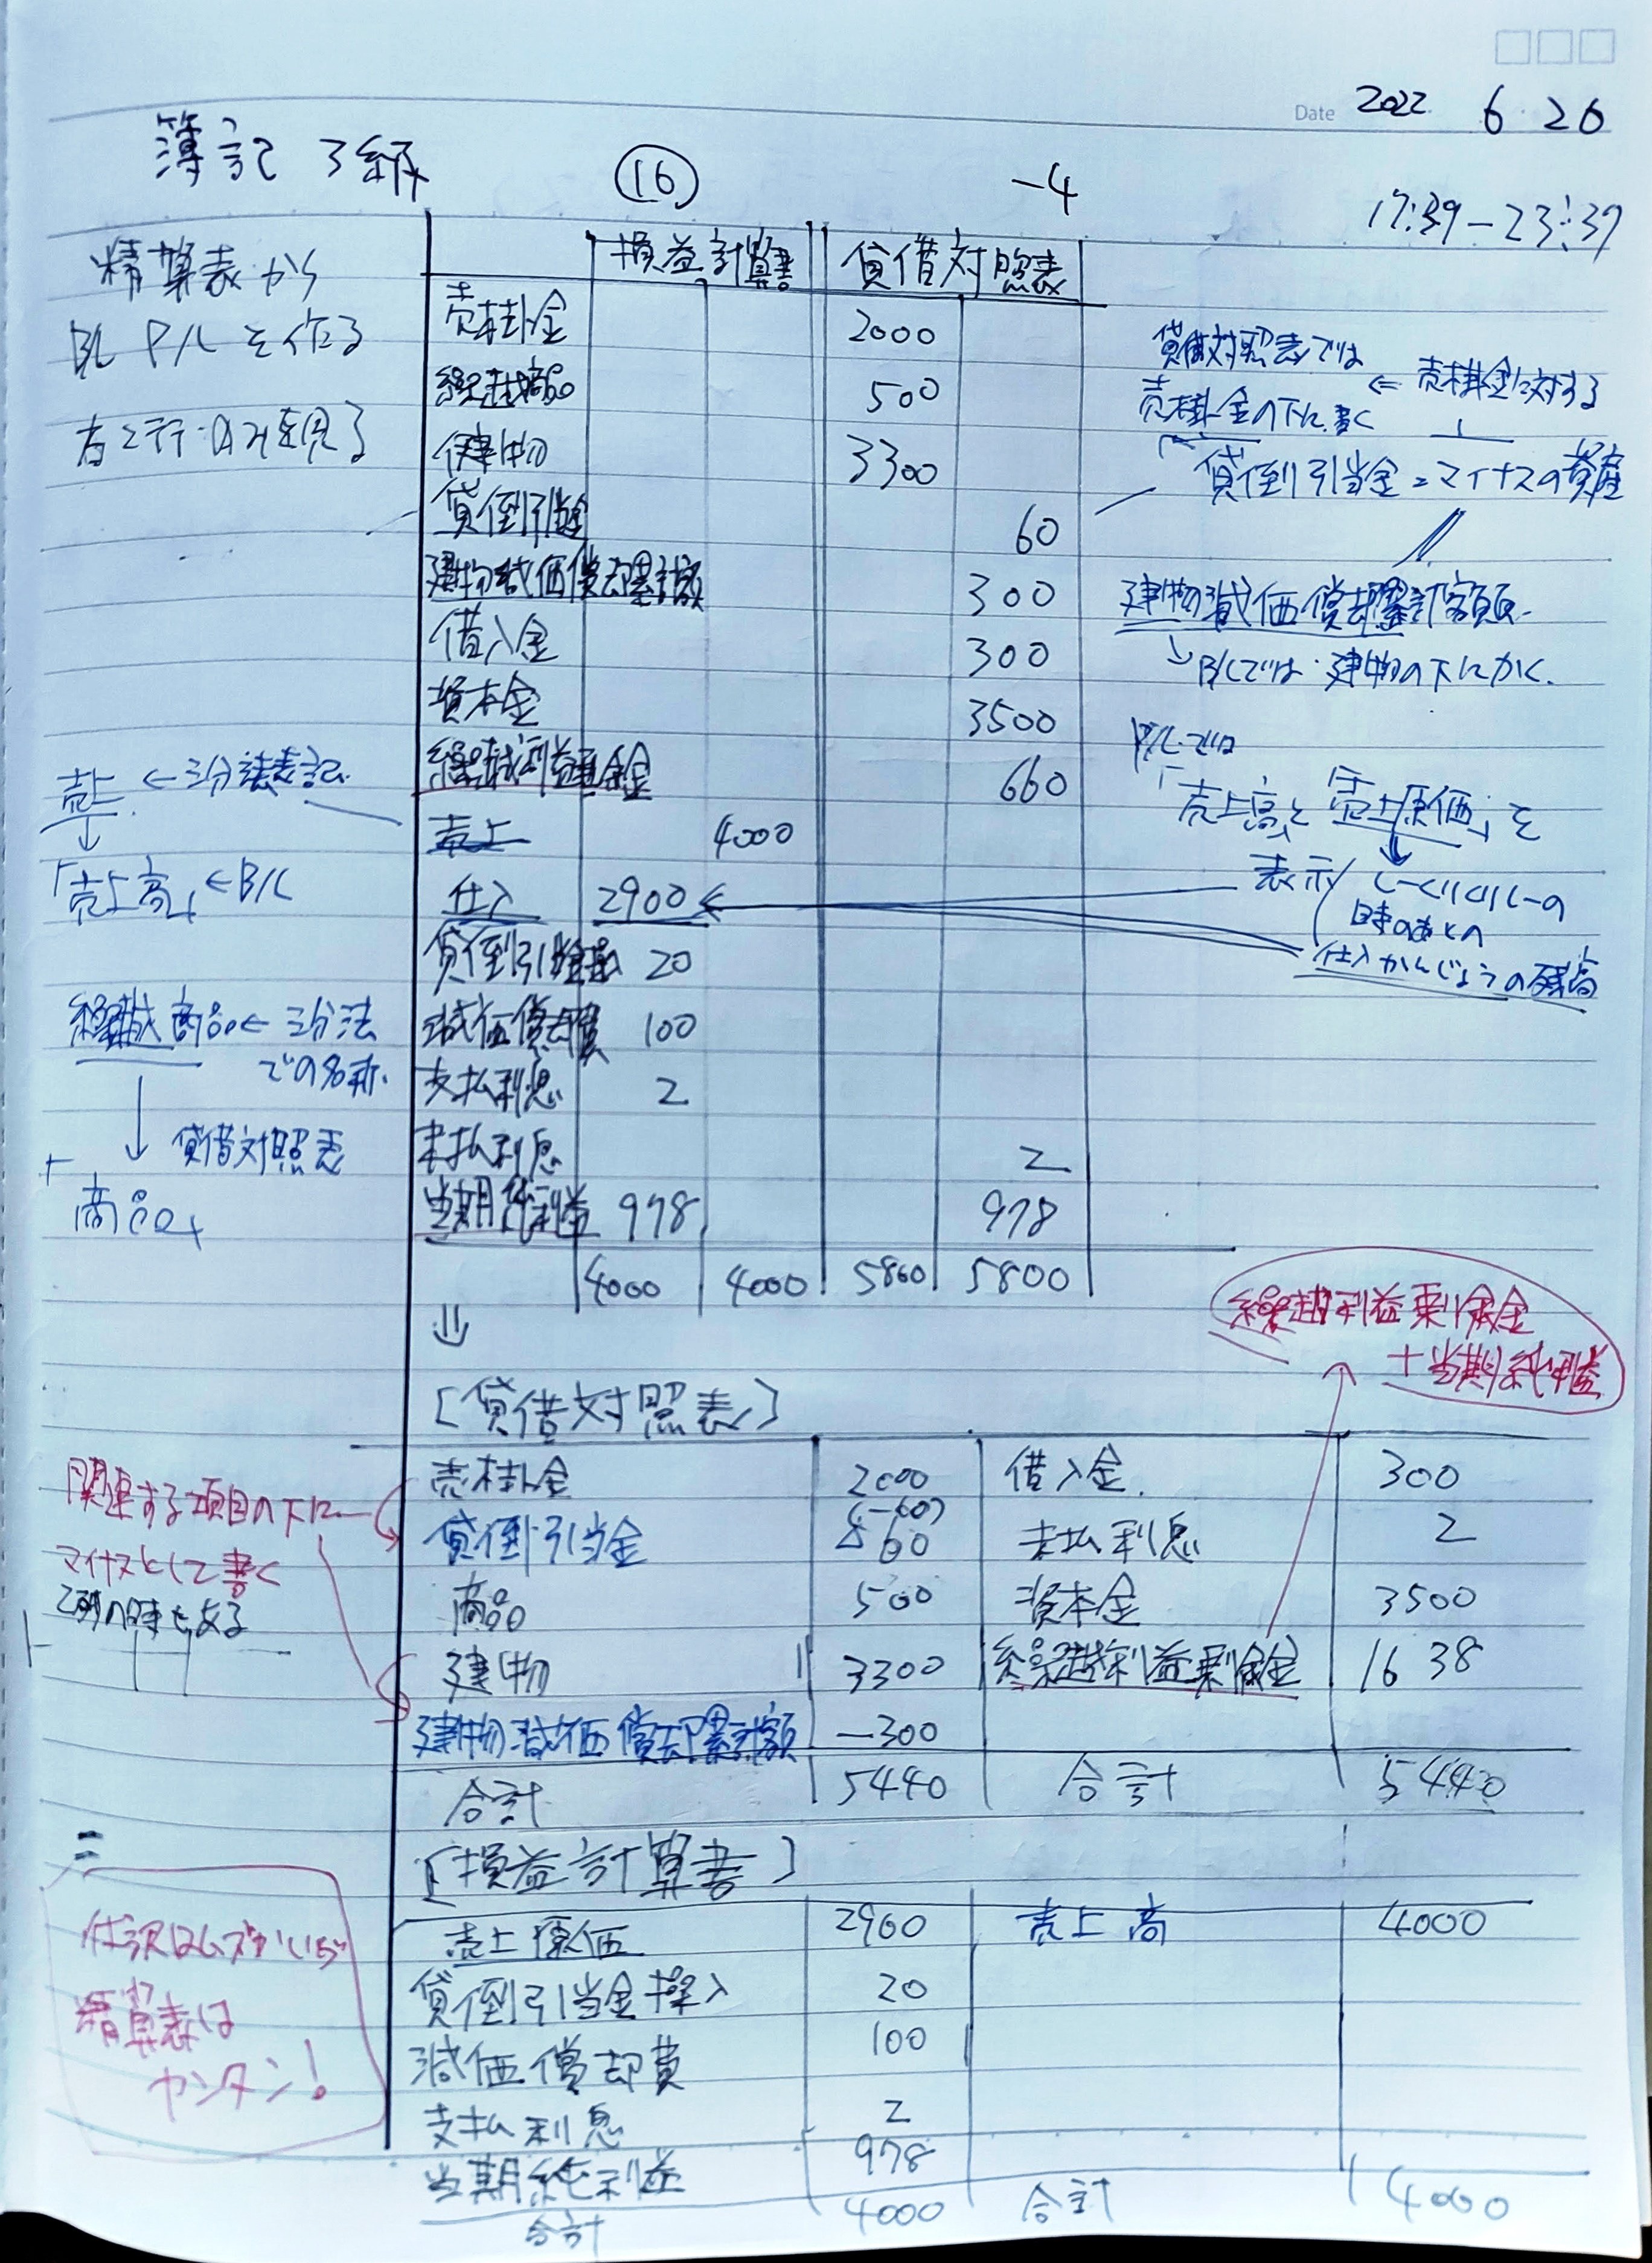 Date 2022. 6 20
簿記 3級 ⑯ -4
17:39-23:39
精算表から
B/L P/Lを作る
損益計算書 貸借対照表
売掛金 2000
繰越商品 500
建物 3300
貸倒引当金 60
建物減価償却累計額 300
借入金 300
資本金 3500
繰越利益剰余金 660
売上 4000
仕入 2900
貸倒引当金繰入 20
減価償却費 100
支払利息 2
未払利息 2
当期純利益 978 978
4000 4000 5800 5800
⇓
売上 ←三分法表記
↓
「売上高」←B/L
繰越商品←三分法
での名称.
↓ 貸借対照表
「商品」
貸借対照表では
売掛金の下に書く
⇐ 売掛金に対する
貸倒引当金=マイナスの資産
建物減価償却累計額
↳B/Lでは 建物の下にかく.
P/Lでは
「売上高」と「売上原価」を
表示
しーくりくりしーの
時のあとの
仕入かんじょうの残高
繰越利益剰余金
+当期純利益
[貸借対照表]
売掛金 2000 借入金. 300
(-60)
貸倒引当金 △60 未払利息 2
商品 500 資本金 3500
建物 3300 繰越利益剰余金 1638
建物減価償却累計額 -300
合計 5440 合計 5440
関連する項目の下に
マイナスとして書く
2列の時もある
[損益計算書]
売上原価 2900 売上高 4000
貸倒引当金繰入 20
減価償却費 100
支払利息 2
当期純利益 978
合計 4000 合計 4000
精算表は
カンタン!